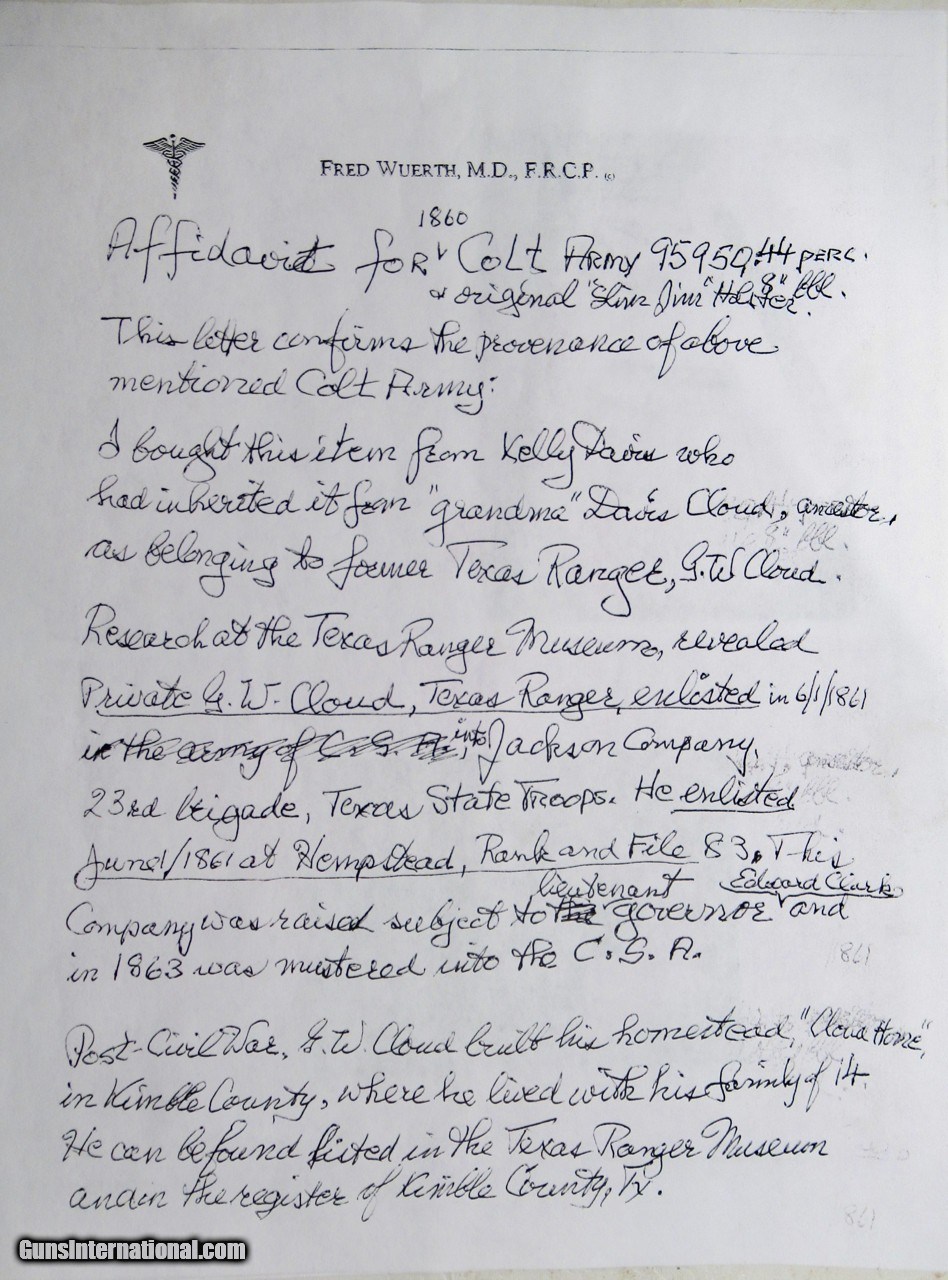 FRED WUERTH, M.D., F.R.C.P. (c)
1860
Affidavit for Colt Army 95950 .44 perc.
8" bbl.
& original "Slim Jim" Holster.
This letter confirms the provenance of above
mentioned Colt Army:
I bought this item from Kelly Davis who
had inherited it from "grandma" Davis Cloud, ancestor,
as belonging to former Texas Ranger, G.W Cloud.
Research at the Texas Ranger Museum, revealed
Private G.W. Cloud, Texas Ranger, enlisted in 6/1/1861
in the army of C.S.A., into Jackson Company,
23rd brigade, Texas State Troops. He enlisted
June 1/1861 at Hempstead, Rank and File 83. This
lieutenant Edward Clark
Company was raised subject to the governor and
in 1863 was mustered into the C.S.A.
Post-Civil War, G.W. Cloud built his homestead, "Cloud Home",
in Kimble County, where he lived with his family of 14.
He can be found listed in the Texas Ranger Museum
and in the register of Kimble County, Tx.
GunsInternational.com